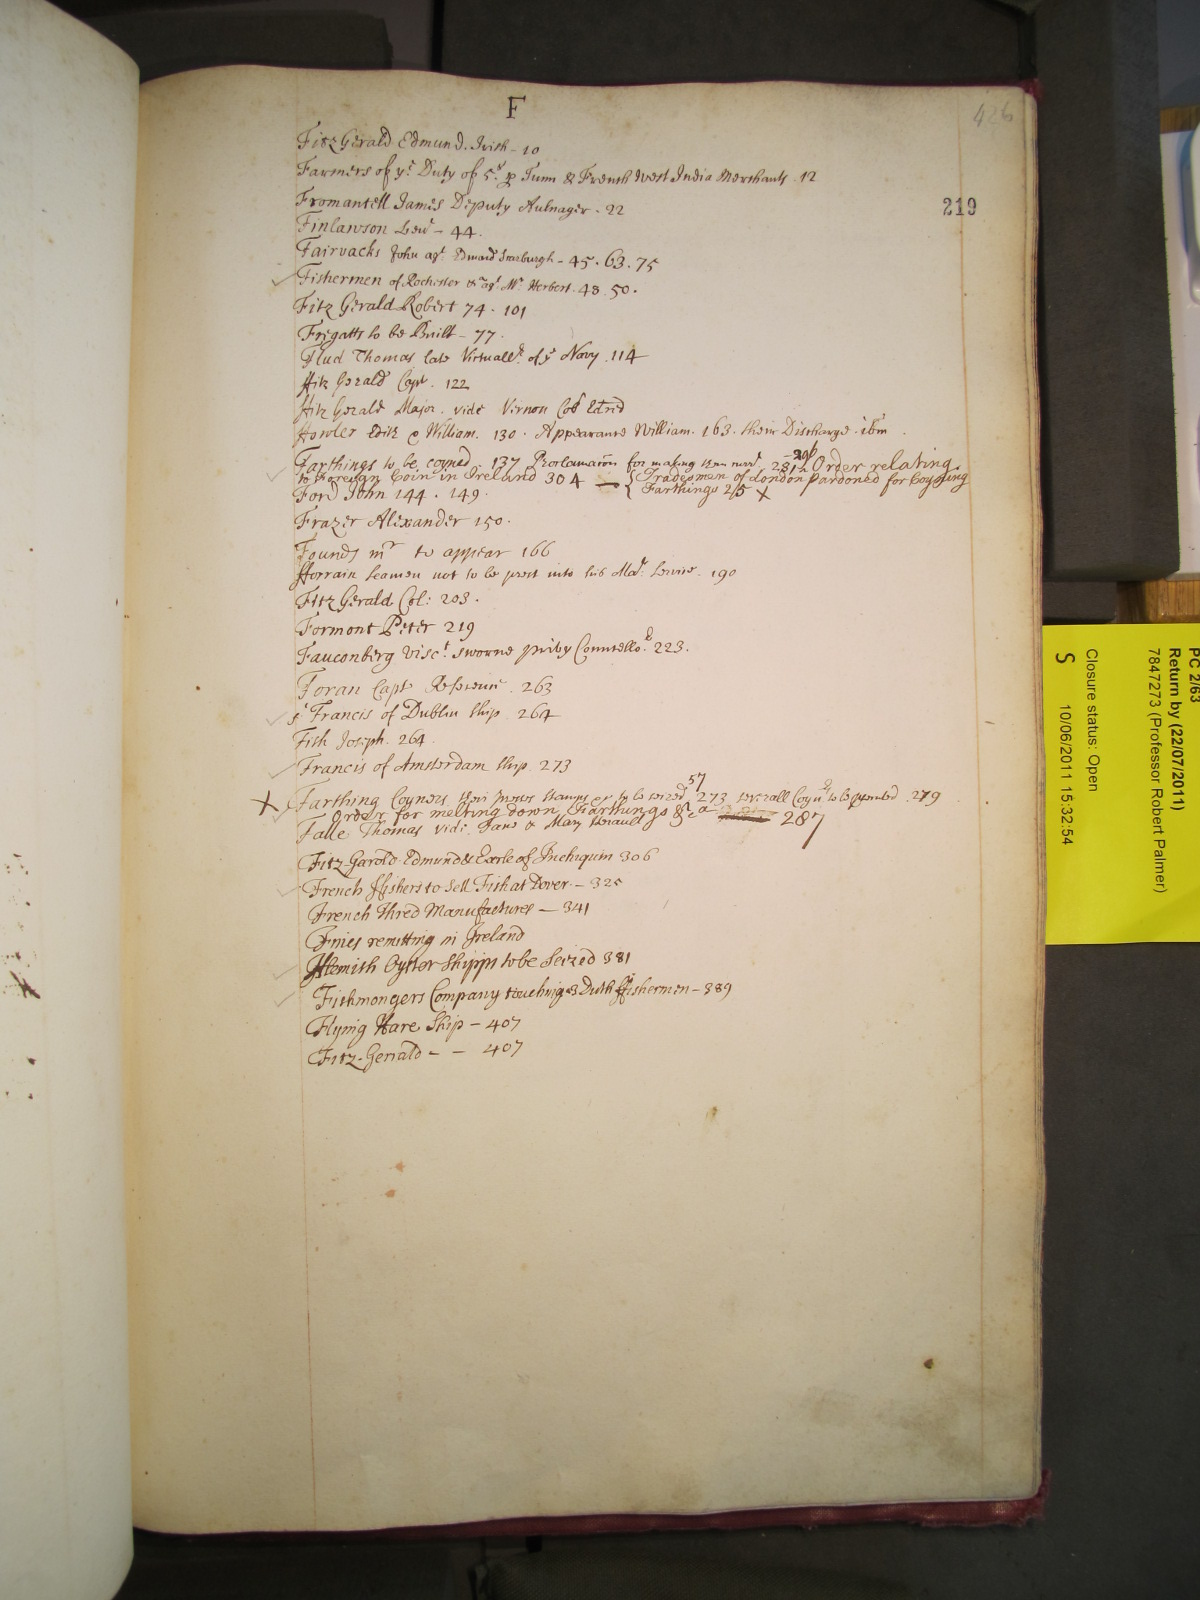 F
426
219
FitzGerald Edmund. Irish - 10
Farmers of yᵉ Duty of 5ˢ ꝑ Tunn & French West India Merchants. 12
Fromantell James Deputy Aulnager. 22
Finlawson - 44.
Fairvacks John agᵗ Edmund Scarburgh - 45. 63. 75
Fishermen of Rochester &ᶜ agᵗ Mʳ Herbert. 48. 50.
Fitz Gerald Robert 74. 101
Frigatts to be Built - 77.
Flud Thomas late Victuallʳ of yᵉ Navy. 114
ffitz Gerald Capt. 122
ffitz Gerald Major. vide Vernon Coll
ffowler & William. 130. Appearance William. 163. their Discharge. ibm.
Farthings to be coyned. 137. Proclamacon for making 281 Order relating
to Foreign Coin in Ireland 304 — { Tradesmen of London pardoned for Coyning
Farthings 215 X
Ford John 144. 149.
Frazer Alexander 150.
Founds mʳ to appear 166
fforrain Seamen not to be prest into his Maᵗˢ Service. 190
FitzGerald Col: 203.
Formont Peter 219
Fauconberg Viscᵗ sworne privy Counselloʳ. 223.
Foran Capt 263
Sᵗ Francis of Dublin Ship 264
Fish Joseph. 264.
Francis of Amsterdam Ship. 273
X Farthing Coyners, their Stamps &c to be seized 57 273 severall Coynʳˢ to be 279
Order for melting down Farthings &cᵃ 287
Falle Thomas vide Jane & Mary
Fitz-Garold Edmund & Earle of Inchiquin 306
French ffishers to Sell Fish at Dover - 325
French Thred Manufactures — 341
Fines remitting in Ireland
fflemish Oyster Shipps to be Seized 381
Fishmongers Company touching Dutch ffishermen - 389
Flying Hare Ship - 407
Fitz-Gerrald - - 407
PC 2/63
Return by (22/07/2011)
7847273 (Professor Robert Palmer)
Closure status: Open
S 10/06/2011 15:32:54